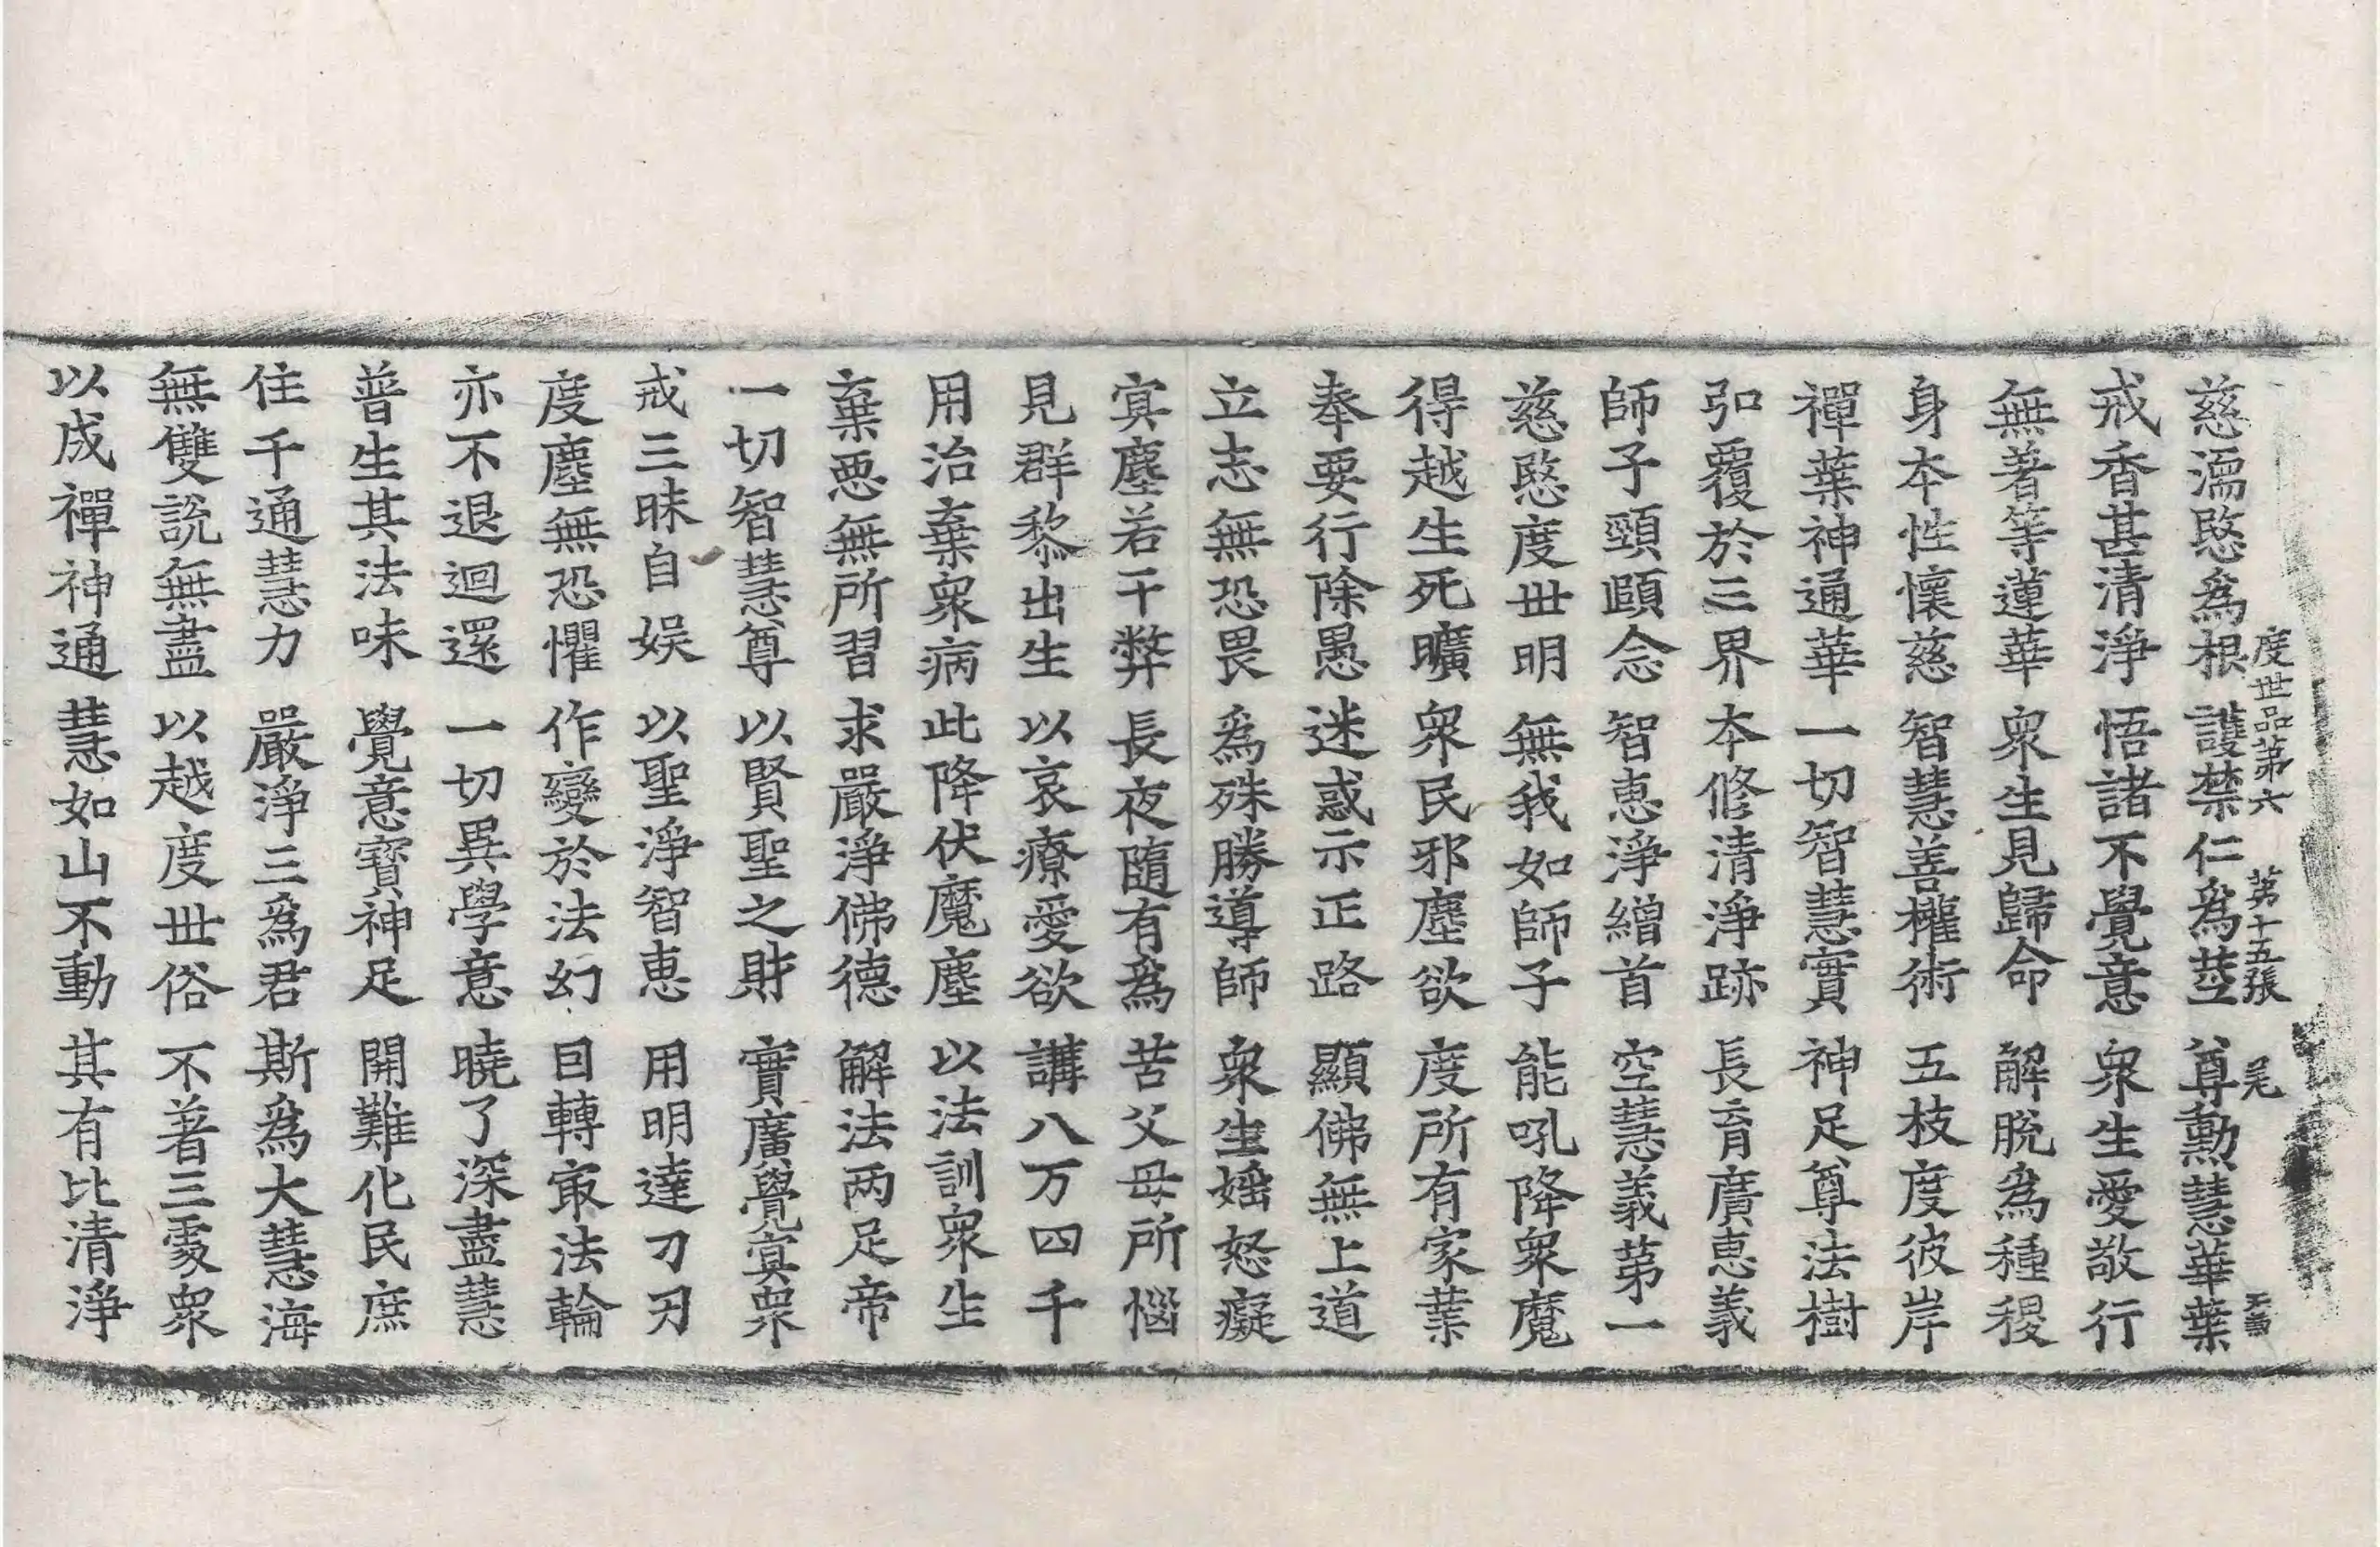 度世品第六 第十五張 㞑
慈濡愍爲根 護禁仁爲莖 尊勳慧華葉
戒香甚清淨 悟諸不覺意 衆生愛敬行
無著等蓮華 衆生見歸命 解脫爲種稷
身本性懷慈 智慧善權術 五枝度彼岸
禪葉神通華 一切智慧實 神足尊法樹
弘覆於三界 本修清淨跡 長育廣恵義
師子頸頤念 智恵淨繒首 空慧義苐一
慈愍度世明 無我如師子 能吼降衆魔
得越生死曠 衆民邪塵欲 度所有家業
奉要行除愚 迷惑示正路 顯佛無上道
立志無恐畏 爲殊勝導師 衆生婬怒癡
冥塵若干弊 長夜隨有爲 苦父母所惱
見群黎出生 以哀療愛欲 講八万四千
用治棄衆病 此降伏魔塵 以法訓衆生
棄惡無所習 求嚴淨佛德 解法两足帝
一切智慧尊 以賢聖之財 實廣覺冥衆
戒三昧自娱 以聖淨智恵 用明達刀刃
度塵無恐懼 作變於法幻 目轉㝡法輪
亦不退迴還 一切異學意 曉了深盡慧
普生其法味 覺意寶神足 開難化民庶
住千通慧力 嚴淨三爲君 斯爲大慧海
無雙說無盡 以越度世俗 不著三處衆
以成禪神通 慧如山不動 其有比清淨